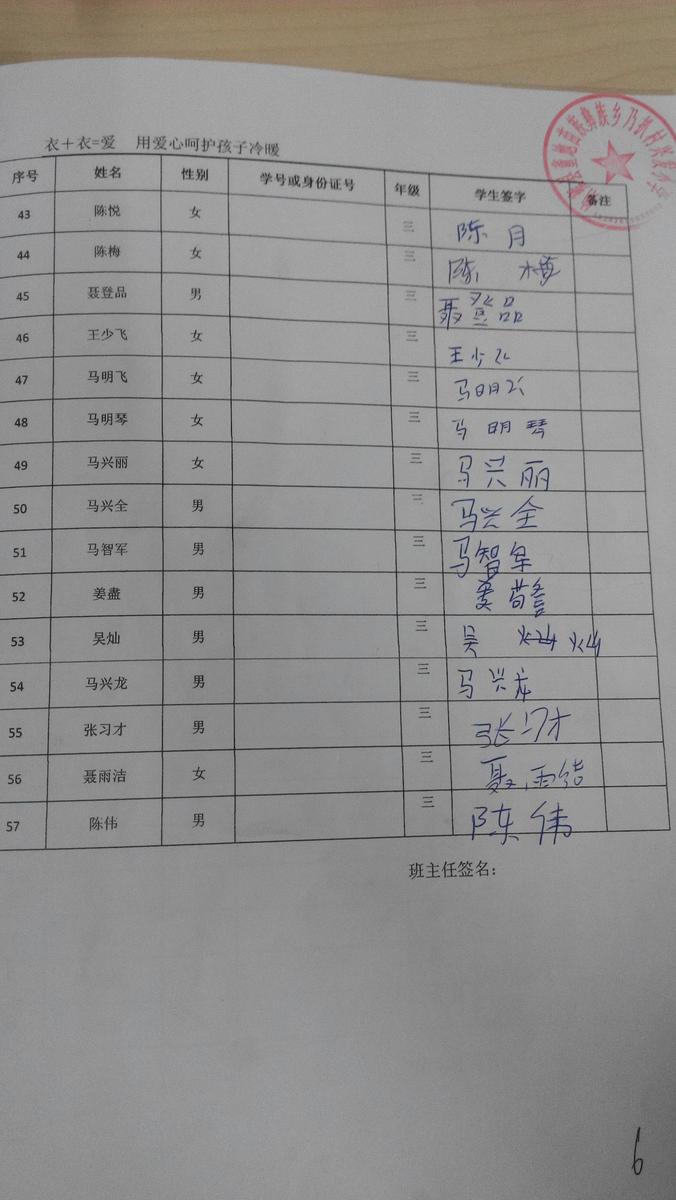 衣+衣=爱 用爱心呵护孩子冷暖
序号 姓名 性别 学号或身份证号 年级 学生签字 备注
43 陈悦 女 三 陈月
44 陈梅 女 三 陈
45 聂登品 男 三 聂登品
46 王少飞 女 三 王少飞
47 马明飞 女 三 马明飞
48 马明琴 女 三 马明琴
49 马兴丽 女 三 马兴丽
50 马兴全 男 三 马兴全
51 马智军 男 三 马智军
52 姜盡 男 三 姜
53 吴灿 男 三 吴灿
54 马兴龙 男 三 马兴龙
55 张习才 男 三 张习才
56 聂雨洁 女 三 聂雨结
57 陈伟 男 三 陈伟
班主任签名：
6